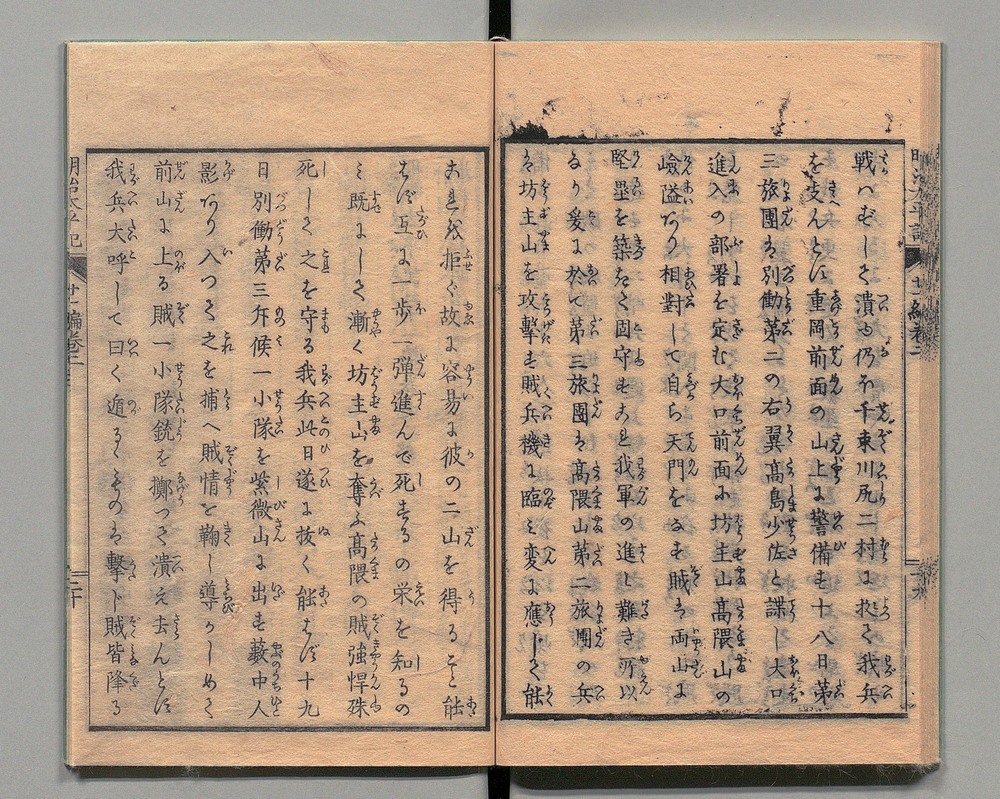 戦ハむして潰ゆ仍ほ千束川尻二村に拠て我兵
を支んとに重岡前面の山上に警備す十八日第
三旅團ハ別働第二の右翼髙島少佐と諜し大口
進入の部署を定む大口前面に坊主山髙隈山の
嶮隘あり相對して自ら天門をなす賊ハ両山に
堅壘を築きて固守すこれ我軍の進し難き所以
なり爰に於て第三旅團ハ髙隈山第二旅團の兵
ハ坊主山を攻撃す賊兵機に臨ミ変に應じて能
これを拒ぐ故に容易に彼の二山を得ること能
はず互に一歩一弾進んで死するの栄を知るの
ミ既にして漸く坊主山を奪ふ髙隈の賊強悍殊
死して之を守る我兵此日遂に抜く能はず十九
日別働第三斥候一小隊を紫微山に出す藪中人
影あり入つて之を捕へ賊情を鞠し導かしめて
前山に上る賊一小隊銃を擲つて潰え去んとす
我兵大呼して曰く遁るゝものハ撃ト賊皆降る
明治太平記
廿一編巻二